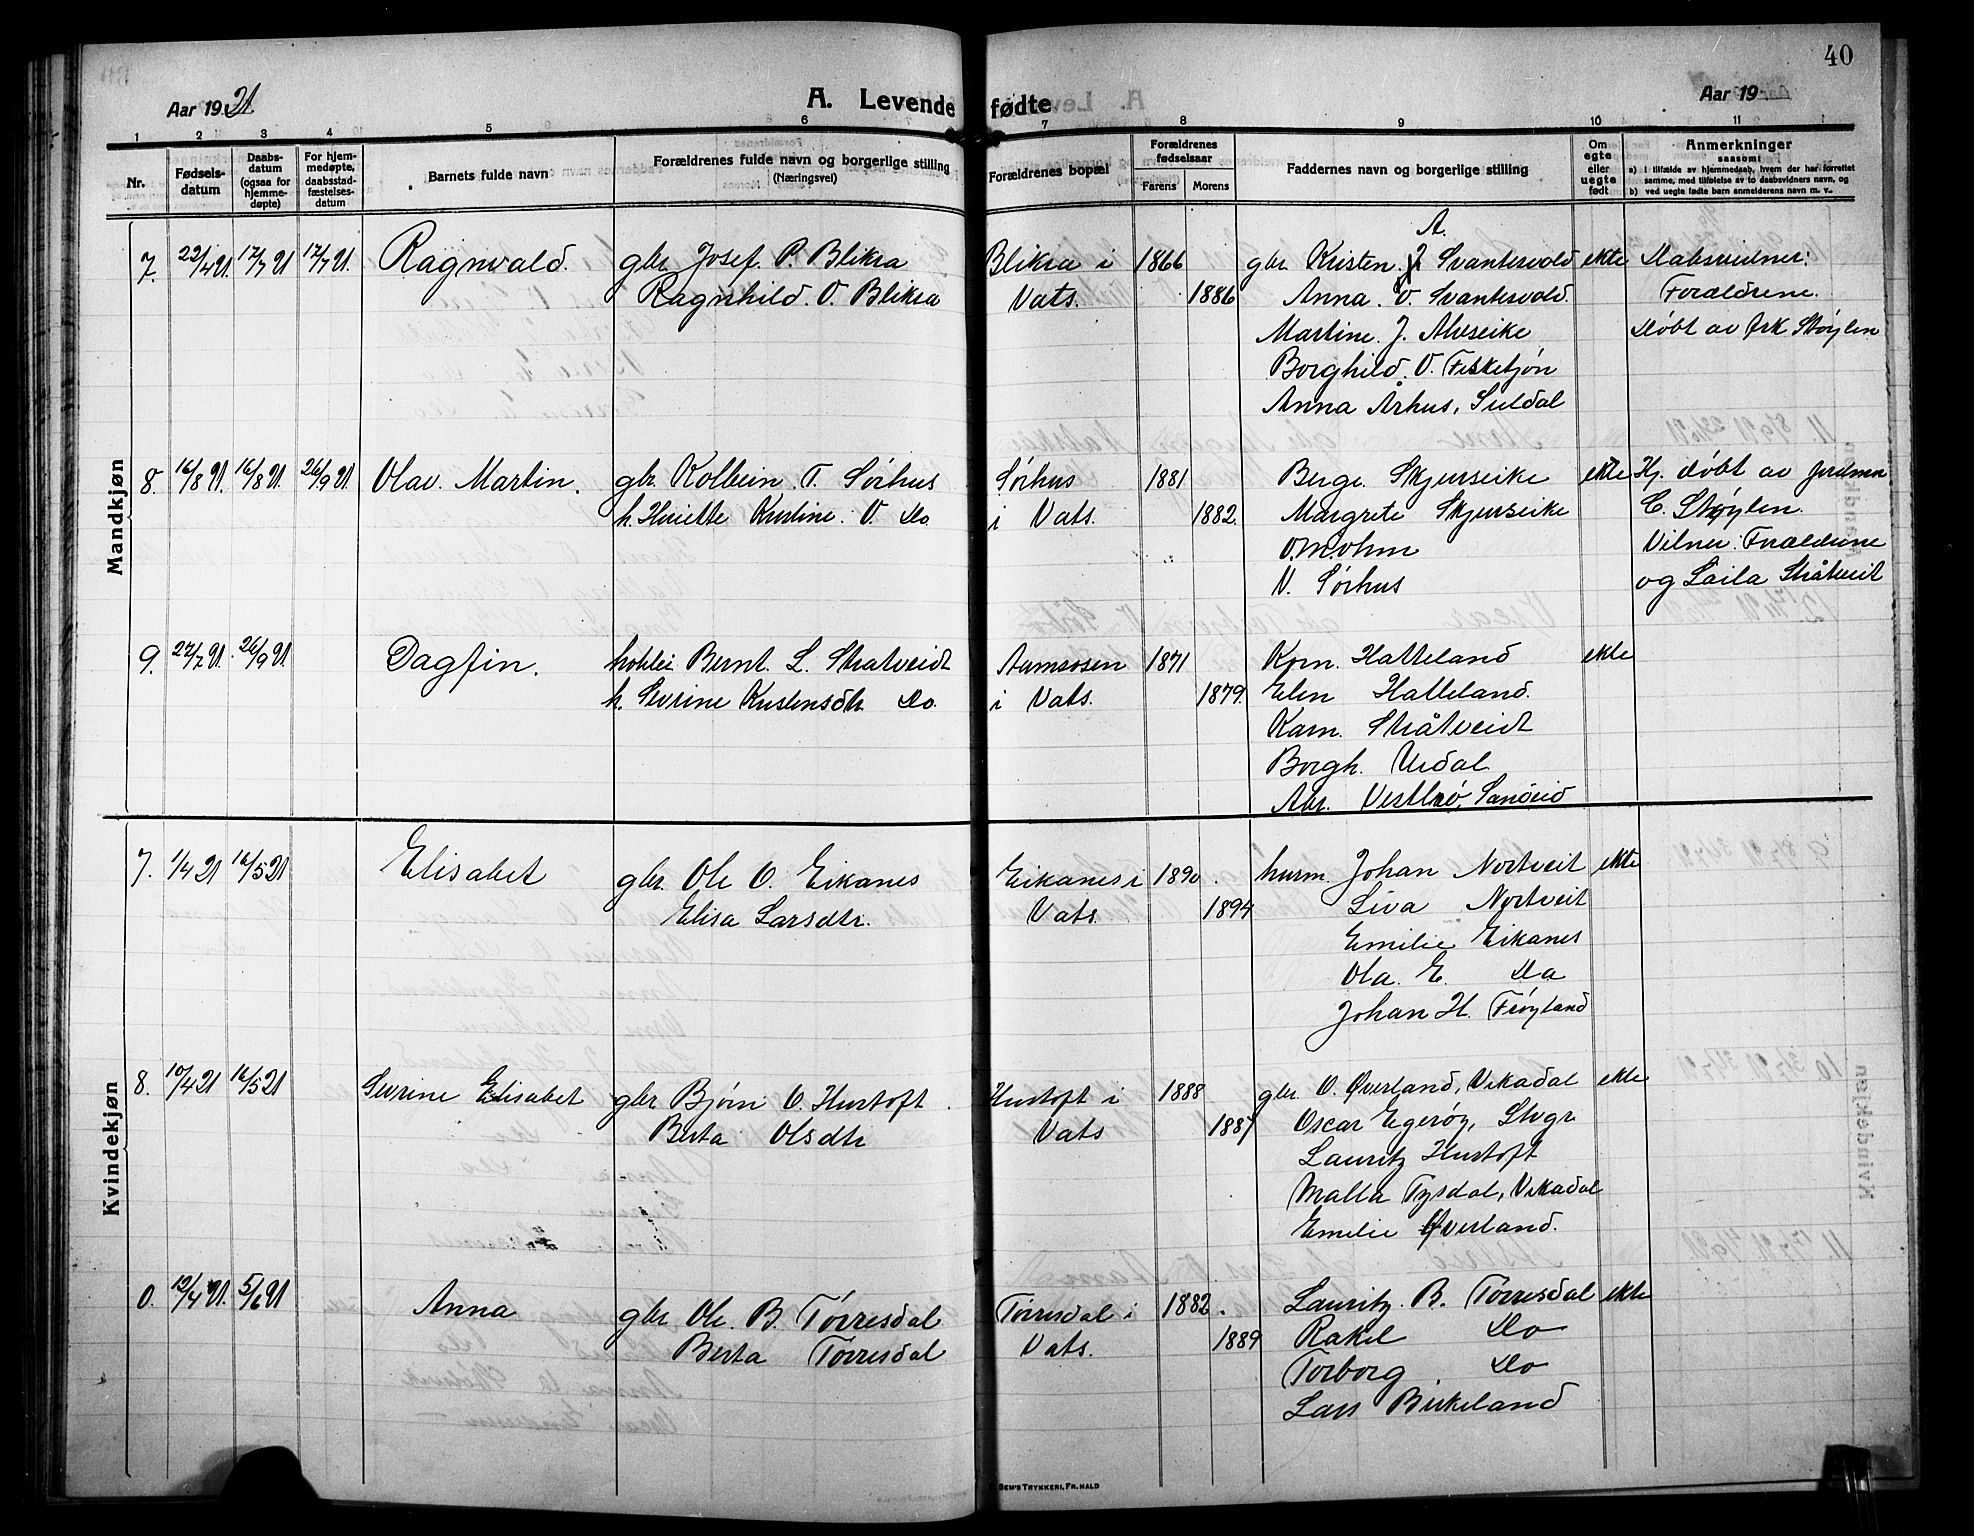 40
Aar 1921.
A. Levende fødte
Aar 19
1 2 3 4 5 6 7 8 9 10 11
Nr.
Fødsels-
datum
Daabs-
datum
(ogsaa for
hjemme-
døpte)
For hjem-
medøpte,
daabsstad-
fæstelses-
datum
Barnets fulde navn
Forældrenes fulde navn og borgerlige stilling
(Næringsvei)
Forældrenes bopæl
Forældrenes
fødselsaar
Farens Morens
Faddernes navn og borgerlige stilling
Om
egte
eller
uegte
født
Anmerkninger
saasom:
a) i tilfælde av hjemmedaab, hvem der har forrettet
samme, med tilføielse av to daabsvidners navn, og
b) ved uegte fødte barn anmelderens navn m. v..
Mandkjøn
7. 22/4 21. 17/7 21 17/7 21. Ragnvald. gbr Josef. P. Blikra Blikra i 1866 gbr Kristen. A. Svantesvold ekte Daabsvidner:
Ragnhild. O. Blikra Vats. 1886 Anna. O. Svantesvold. Forældrene.
Martine. J. Alvseike Døbt av frk Støylen
Borghild. O. Fisketjøn
Anna Århus, Suldal
8. 16/8 21. 16/8 21. 26/9 21. Olav. Martin. gbr. Kolbein. T. Sørhus Sørhus 1881 Berge Skjerseike ekte Hj. døbt av jordmor
h. Henriette Kristine. O. Do. i Vats. 1882. Margrete Skjerseike C. Støylen.
Vitner: Forældrene
V. Sørhus og Laila Stråtveit
9. 27/7 21. 26/9 21 Dagfin. Bernt. L. Stratveidt Aamsosen 1871 Korn. Hatteland ekte
h. Sevrine Kristensdtr. Do. i Vats. 1879. Elen Hatteland.
Karn. Stråtveidt
Borgh. Urdal
Abr. Vestbø, Sandeid
Kvindekjøn
7. 1/4 21 16/5 21 Elisabet gbr. Ole O. Eikanes Eikanes i 1890 husm. Johan Nortveit ekte
Elisa Larsdtr. Vats. 1894 Liva Nortveit
Emilie Eikanes
Ola. E. Do
Johan H. Frøyland
8. 10/4 21 16/5 21 Sevrine Elisabet gbr Bjørn O. Hustoft Hustoft i 1888 gbr O. Øverland, Vikadal ekte
Berta Olsdtr Vats 1887 Oscar Egerøy, Stvgr
Lauritz Hustoft
Malla Tysdal, Vikadal
Emilie Øverland.
12/4 21. 5/6 21 Anna gbr Ole. B. Tørresdal Tørresdal i 1882. Lauritz. B. Tørresdal ekte
Berta Tørresdal Vats. 1889 Rakel Do
Torborg Do
Lars Birkeland
SEM'S TRYKKERI, FR. HALD